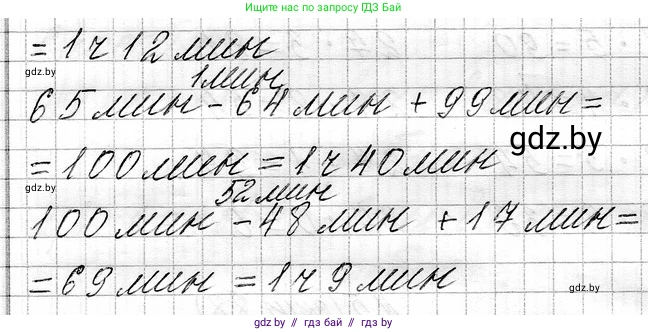 Ищите нас по запросу ГДЗ Бай
= 1ч 12 мин
gdz.by
1 мин
65 мин - 64 мин + 99 мин =
gdz.by
= 100 мин = 1ч 40 мин
gdz.by
52 мин
100 мин - 48 мин + 17 мин =
= 69 мин = 1ч 9 мин
gdz.by
gdz.by
gdz.by // гдз.бай // gdz.by